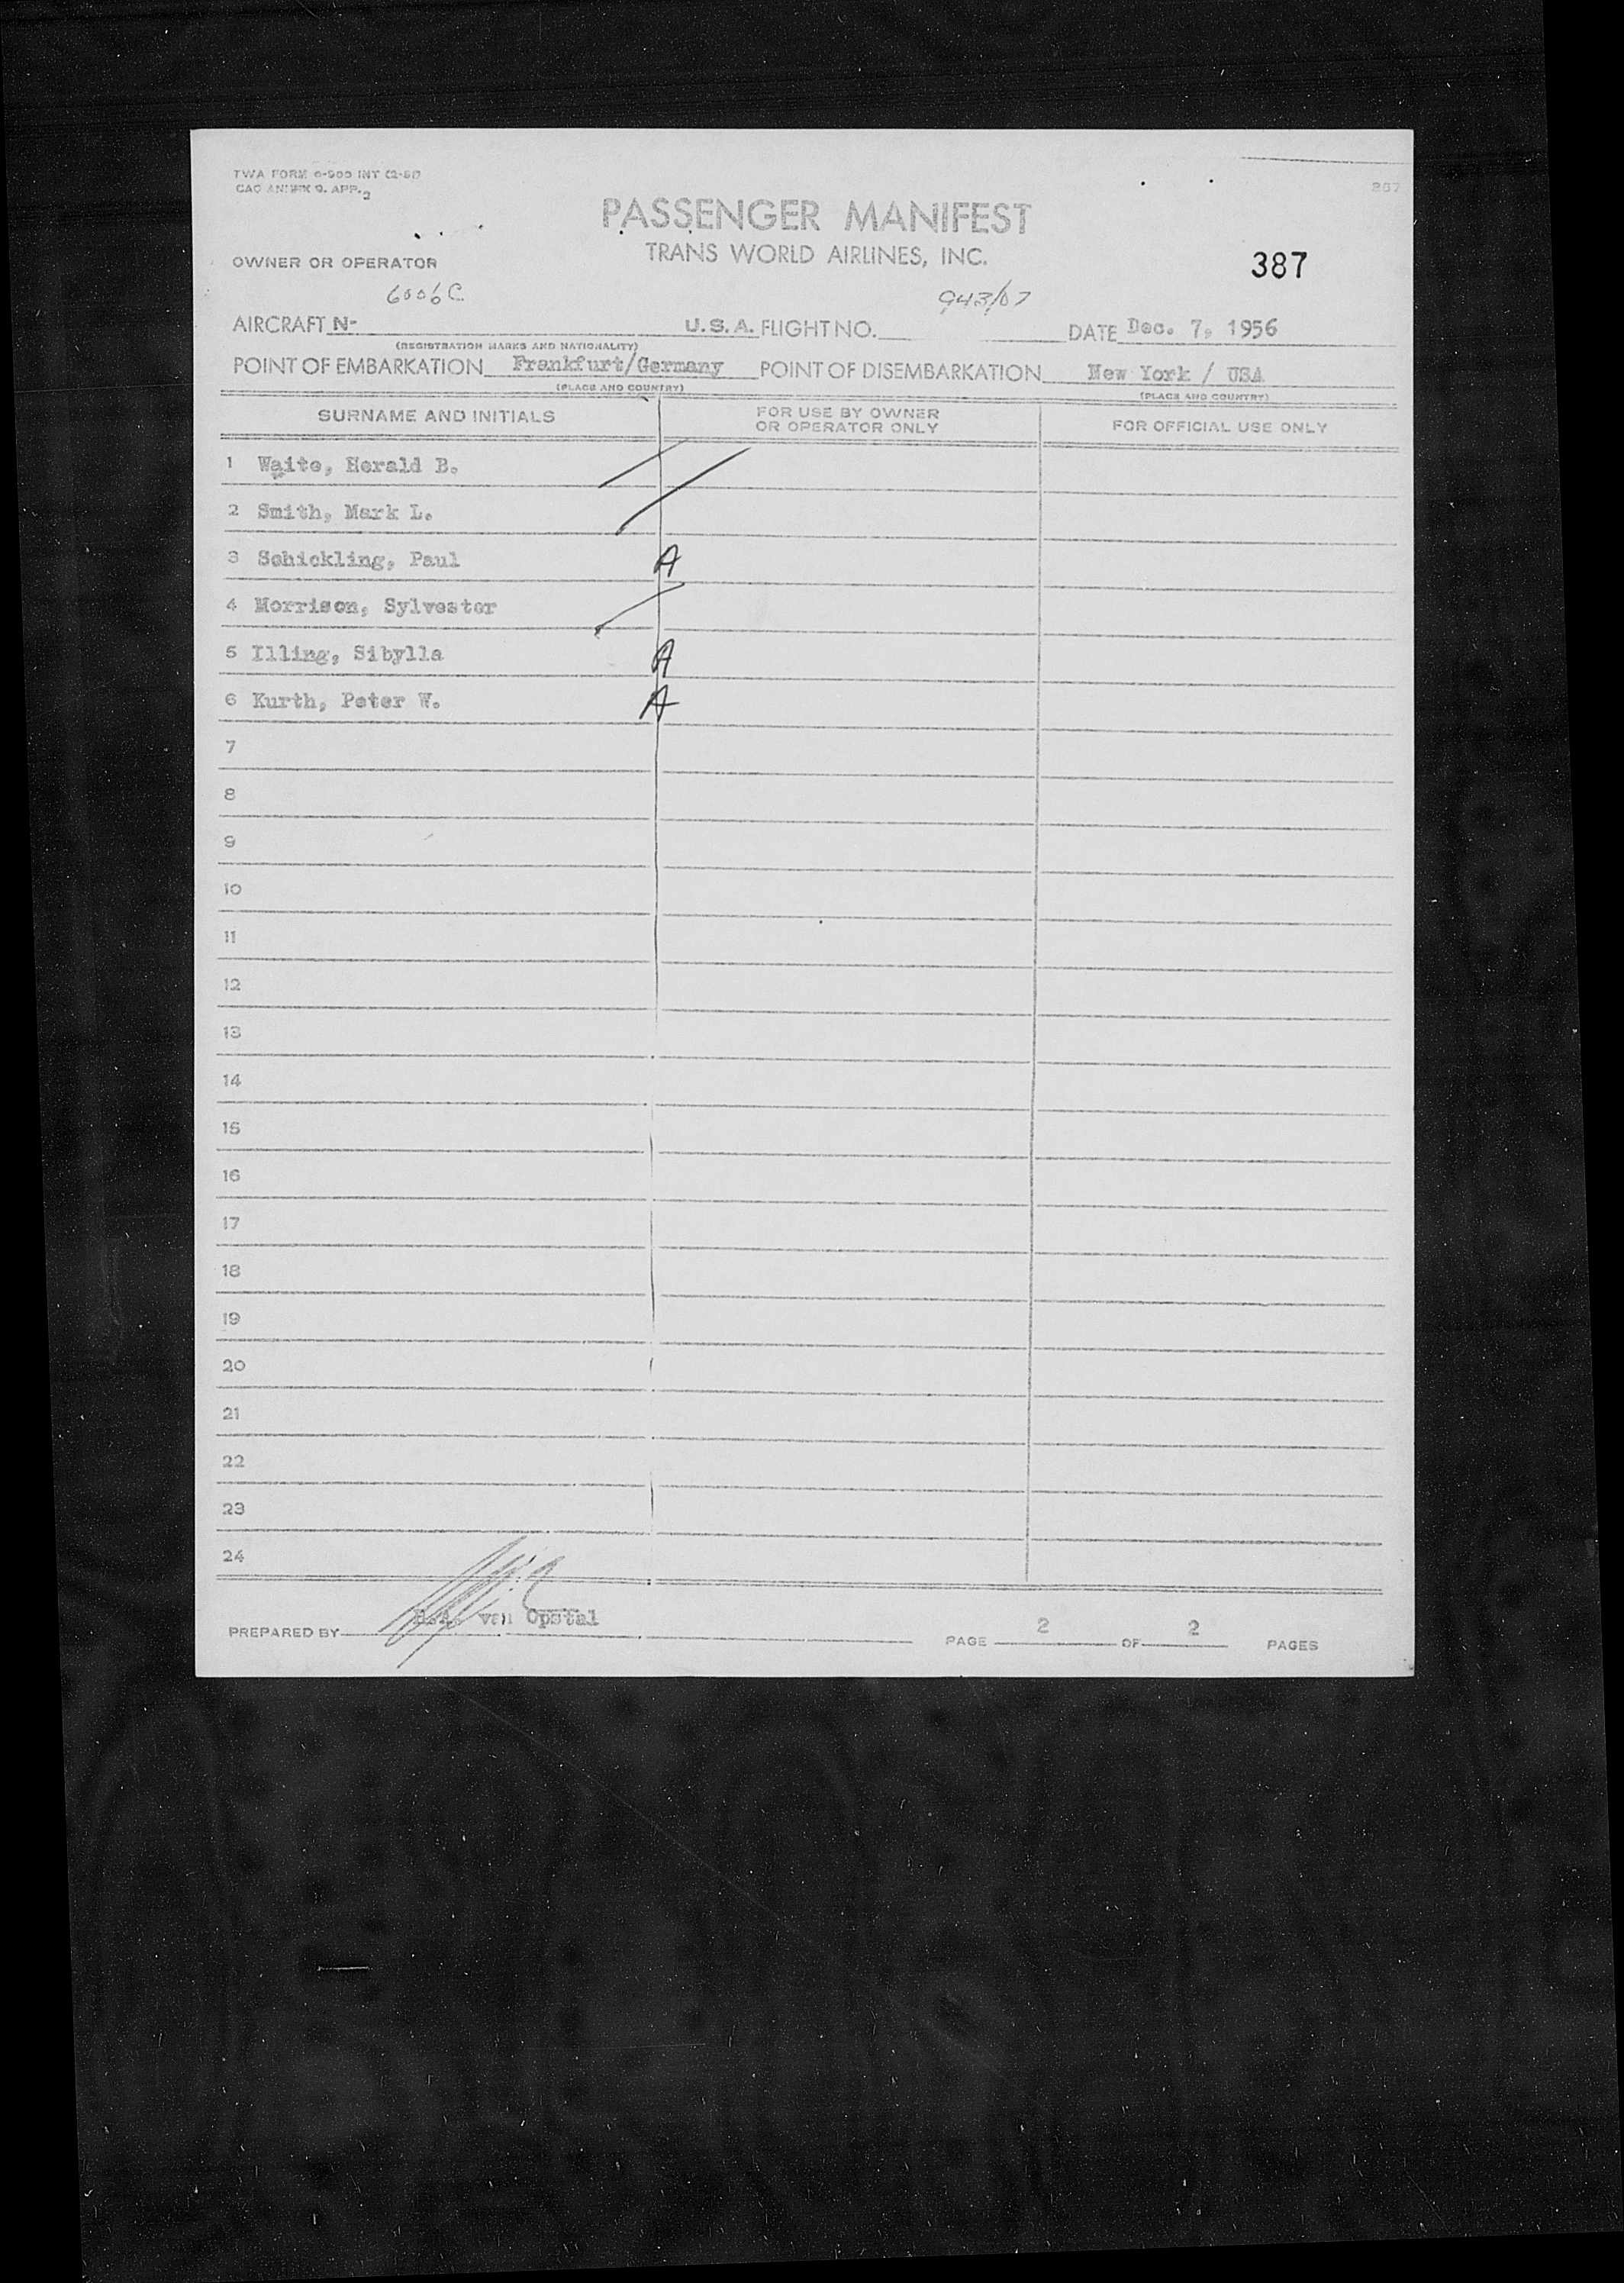 TWA FORM
CAO ANNEX 9. APP. 2
387
PASSENGER MANIFEST
TRANS WORLD AIRLINES, INC.
387
OWNER OR OPERATOR
6006C 943/07
AIRCRAFT N- U.S.A. FLIGHT NO. DATE Dec. 7, 1956
(REGISTRATION MARKS AND NATIONALITY)
POINT OF EMBARKATION Frankfurt/Germany POINT OF DISEMBARKATION New York / USA
(PLACE AND COUNTRY) (PLACE AND COUNTRY)
SURNAME AND INITIALS FOR USE BY OWNER OR OPERATOR ONLY FOR OFFICIAL USE ONLY
1 Waite, Herald B.
2 Smith, Mark L.
3 Schickling, Paul A
4 Morrison, Sylvester
5 Illing, Sibylla A
6 Kurth, Peter W. A
7
8
9
10
11
12
13
14
15
16
17
18
19
20
21
22
23
24
PREPARED BY van Opstal PAGE 2 OF 2 PAGES